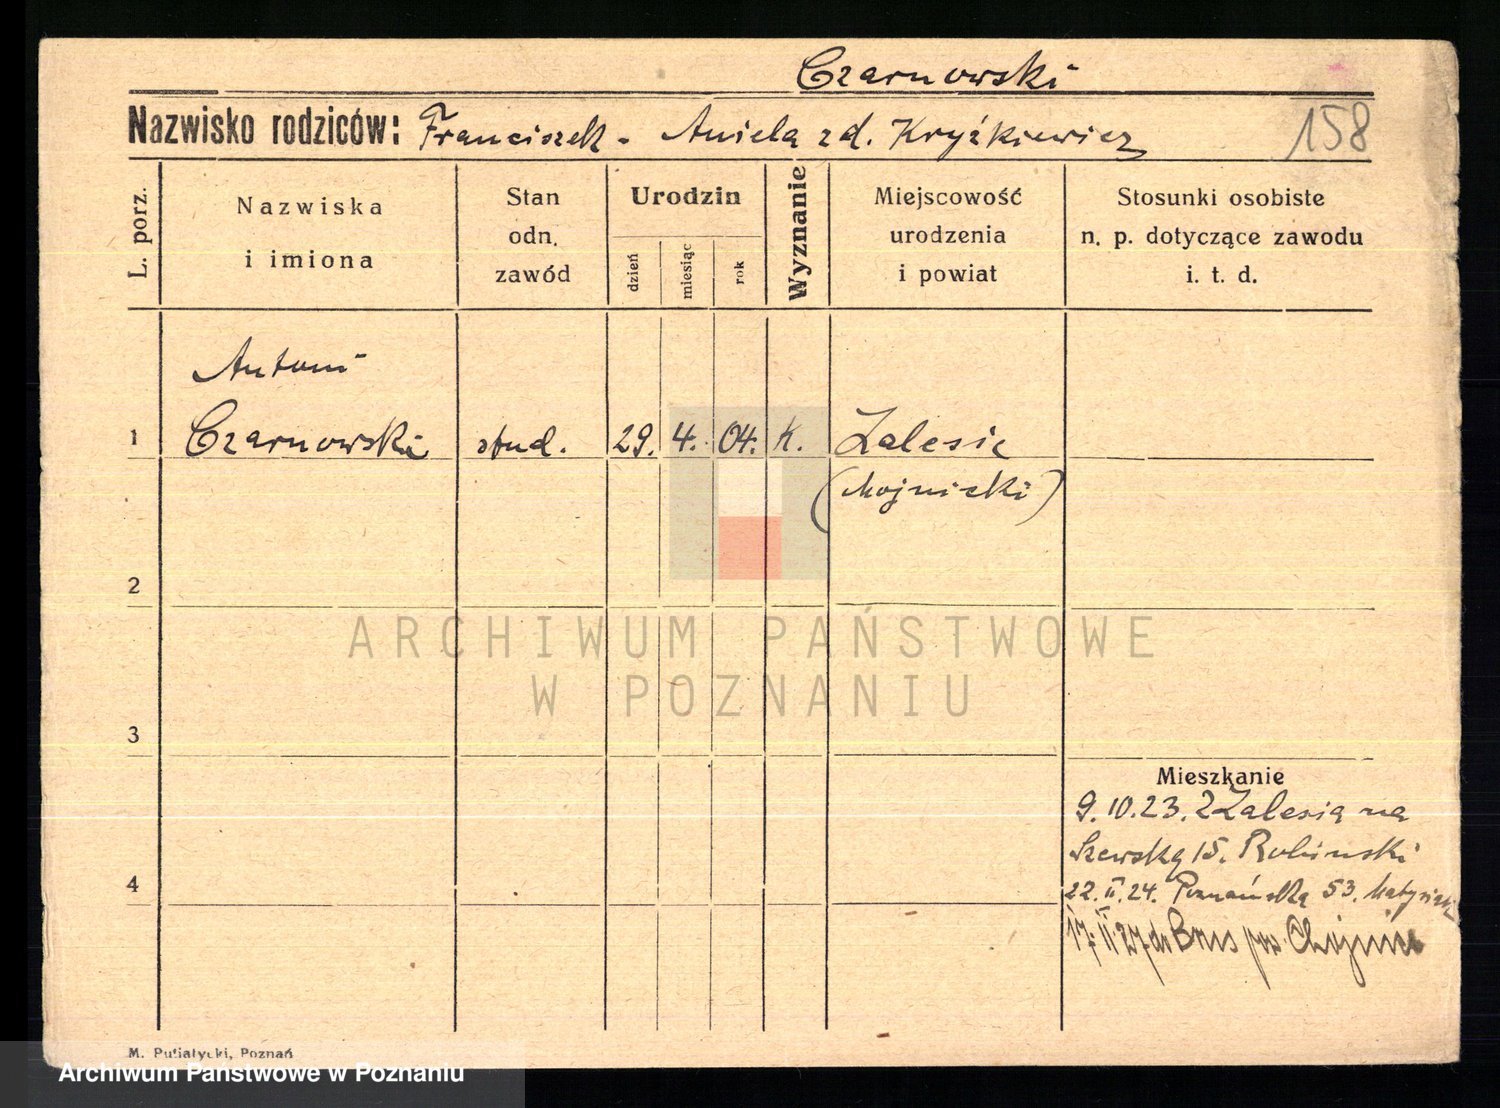 Czarnowski
Nazwisko rodziców: Franciszek - Aniela zd. Kryżkiewicz
158
L. porz.
Nazwiska
i imiona
Stan
odn.
zawód
Urodzin
dzień
miesiąc
rok
Wyznanie
Miejscowość
urodzenia
i powiat
Stosunki osobiste
n. p. dotyczące zawodu
i. t. d.
Antoni
1 Czarnowski stud. 29. 4. 04. K. Zalesie
(Chojnicki)
2
ARCHIWUM PAŃSTWOWE
W POZNANIU
3
4
Mieszkanie
9.10.23. z Zalesia na
Szewską 15. Rubinski
22.II.24. Poznańska 53.
17.II 27 do Brus pow. Chojnice
M. Putiatycki, Poznań
Archiwum Państwowe w Poznaniu